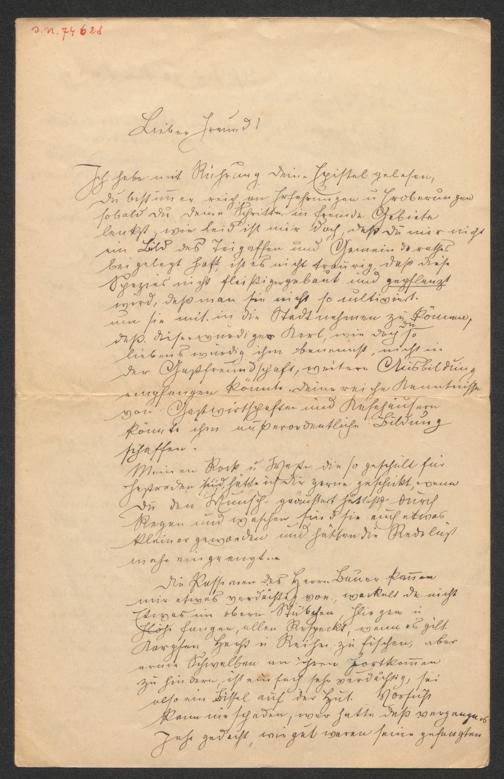 J.N. 74628
Lieber Freund!
Ich habe mit Rührung deine Epistel gelesen,
du bist immer reich an Erfahrungen u Eroberungen
sobald du deine Schritte in fremde Gebiete
lenkst, wie leid ist mir doch, daß du mir nicht
ein Bild des und Gemeinderathes
beigelegt hast, ist es nicht traurig daß diese
Spezies nicht fleißig gebaut und gepflanzt
wird, daß man sie nicht so cultivirt.
um sie mit in die Stadt nehmen zu können,
daß dieser würdige Kerl, wie doch du so
liebenswürdig ihn benennst, nicht in
der Gastfreundschaft, weitere Ausbildung
empfangen könnte. deine reiche Kenntnisse
von Gastwirtschaften und Kaffehäusern
könnte ihm außerordentliche Bildung
schaffen.
Meinen Rock u Weste die so geschäft für
Festreden sind hätte ich dir gerne geschickt, wenn
du den Wunsch geäußert hättest. durch
Regen und waschen sind sie auch etwas
kleiner geworden und hätten die Redelust
mehr eingeengt.
Die Passionen des Herrn Bauer kommen
mir etwas verdächtig vor, wackelt es nicht
etwas im obern Stübchen, Fliegen u
Flöhe fangen, allen Respeckt, wenn es gilt
Karpfen Hecht u Reihn zu fischen, aber
arme Schwalben an ihrem Fortkommen
zu hindern, ist einfach sehr verdächtig, sei
also ein bissel auf der Hut. Vorsicht
kann nie schaden, wer hätte daß vergangenes
Jahr gedacht, wie gut waren seine gefangten